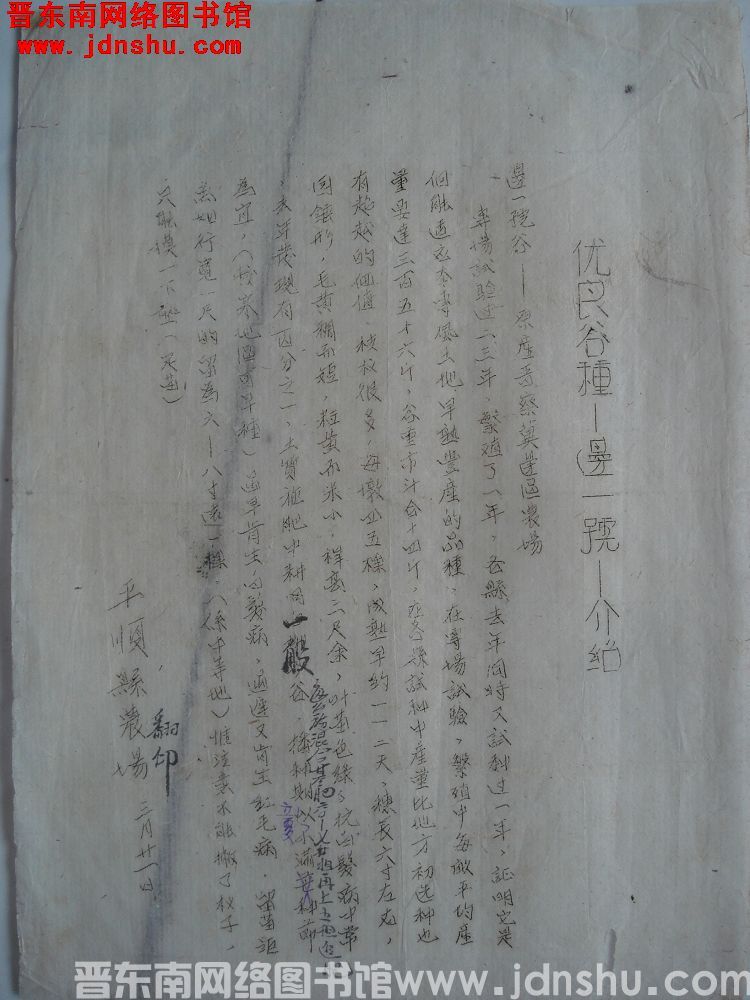 晋东南网络图书馆
www.jdnshu.com
优良谷種—邊一號—介紹
邊一號谷——原產晋察冀邊區農場
專場試驗过二三年、繁殖了一年、各縣去年同時又試种过一年、証明它是
個能適应本專風土地早熟豐產的品種、在專場試驗、繁殖中每畝平均產
量要達三百五十六斤、谷重市斗合十四斤、在各縣試种中產量比地方初选种也
有超越的価值、秧杈很多、每墩四五樑、成熟早約一一二天、穗長六寸左右、
圆錐形、毛黄稠而短、粒黄而米小、稈高三尺余、叶莖色綠、抗白髮病中常
、去年發現有百分之一、土質施肥中耕同一般谷、播种期以小滿
為宜、
過早肯生白髮病、過遲又肯生紅毛病、留苗距
為如行寬一尺的留為六—八寸遠一樑、（係中等地）惟注意不能擻了杈子、
只能摸一下
平順縣農場 翻印 三月廿一日
晋东南网络图书馆 www.jdnshu.com